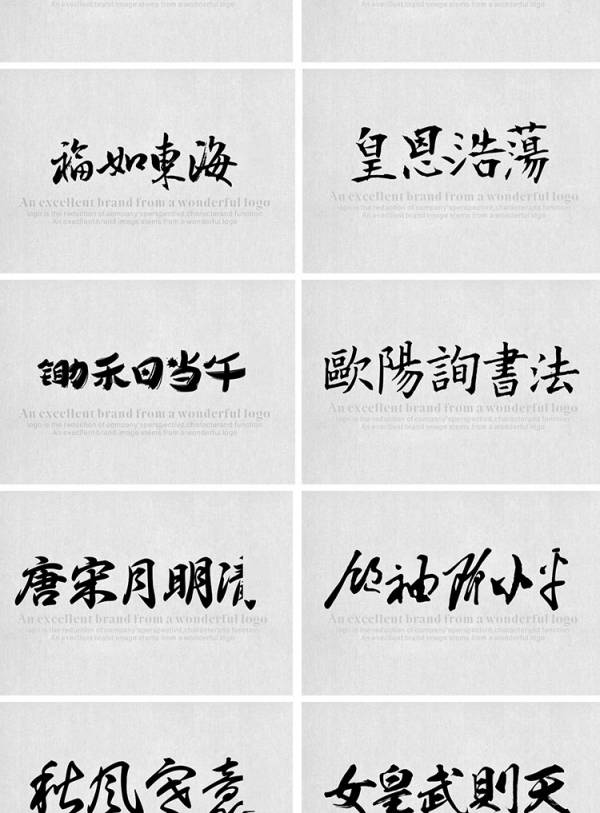 An excellent brand image stems from a wonderful logo
An excellent brand image stems from a wonderful logo
福如東海
An excellent brand from a wonderful logo
logo is the reduction of company'sperspectivd,characterand function
An excellent brand image stems from a wonderful logo
皇恩浩蕩
An excellent brand from a wonderful logo
logo is the reduction of company'sperspectivd,characterand function
An excellent brand image stems from a wonderful logo
锄禾日当午
An excellent brand from a wonderful logo
logo is the reduction of company'sperspectivd,characterand function
An excellent brand image stems from a wonderful logo
歐陽詢書法
An excellent brand from a wonderful logo
logo is the reduction of company'sperspectivd,characterand function
An excellent brand image stems from a wonderful logo
唐宋月明清
An excellent brand from a wonderful logo
logo is the reduction of company'sperspectivd,characterand function
An excellent brand image stems from a wonderful logo
领袖邓小平
An excellent brand from a wonderful logo
logo is the reduction of company'sperspectivd,characterand function
An excellent brand image stems from a wonderful logo
秋风意
女皇武則天